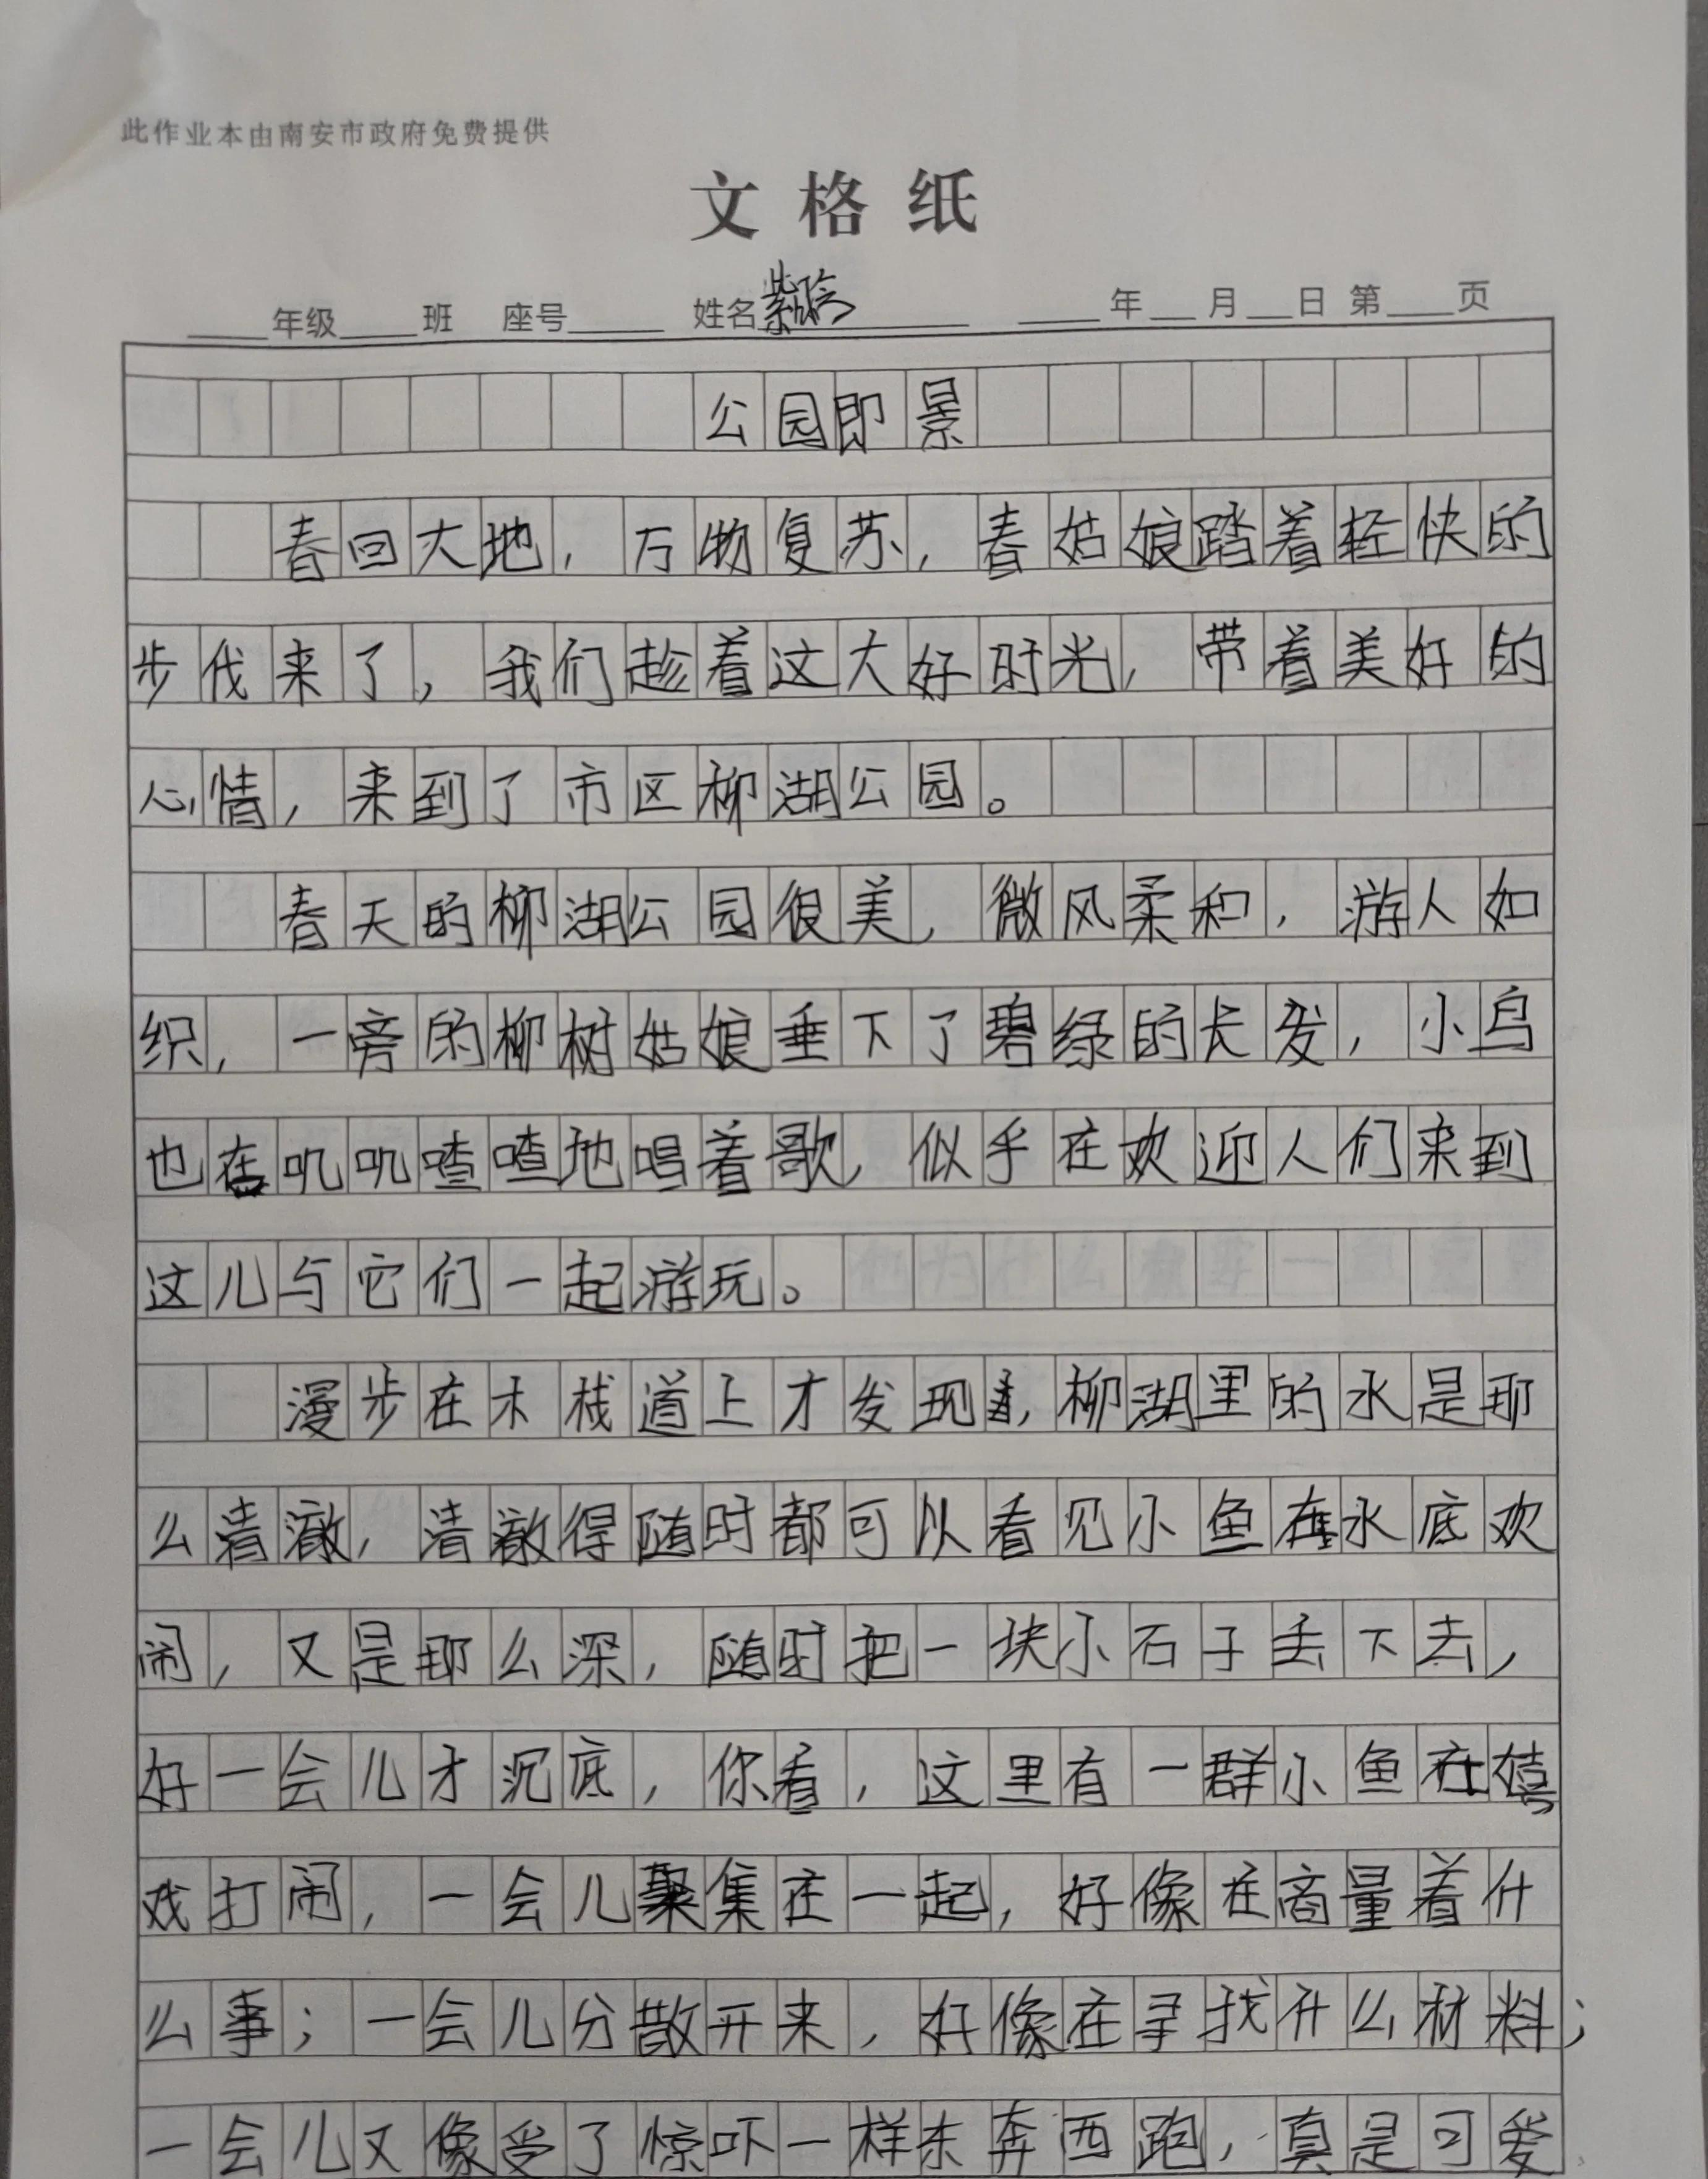 此作业本由南安市政府免费提供
文格纸
年级 班 座号 姓名紫晗 年 月 日 第 页
公园即景
春回大地，万物复苏，春姑娘踏着轻快的
步伐来了，我们趁着这大好时光，带着美好的
心情，来到了市区柳湖公园。
春天的柳湖公园很美，微风柔和，游人如
织，一旁的柳树姑娘垂下了碧绿的长发，小鸟
也在叽叽喳喳地唱着歌，似乎在欢迎人们来到
这儿与它们一起游玩。
漫步在木栈道上才发现，柳湖里的水是那
么清澈，清澈得随时都可以看见小鱼在水底欢
闹，又是那么深，随时把一块小石子丢下去，
好一会儿才沉底，你看，这里有一群小鱼在嬉
戏打闹，一会儿聚集在一起，好像在商量着什
么事；一会儿分散开来，好像在寻找什么材料；
一会儿又像受了惊吓一样东奔西跑，真是可爱